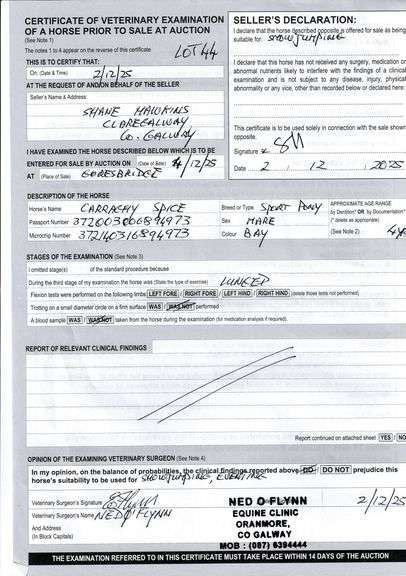 CERTIFICATE OF VETERINARY EXAMINATION
OF A HORSE PRIOR TO SALE AT AUCTION
(See Note 1)
The notes 1 to 4 appear on the reverse of this certificate
LOT 44
THIS IS TO CERTIFY THAT:
On: (Date & Time) 2/12/25
AT THE REQUEST OF AND/ON BEHALF OF THE SELLER
Seller's Name & Address:
SHANE HAWKINS
CLAREGALWAY
Co. GALWAY
I HAVE EXAMINED THE HORSE DESCRIBED BELOW WHICH IS TO BE
ENTERED FOR SALE BY AUCTION ON (Date of Sale) 4/12/25
AT (Place of Sale) GORESBRIDGE
SELLER'S DECLARATION:
I declare that the horse described opposite is offered for sale as being
suitable for: SHOWJUMPING
I declare that this horse has not received any surgery, medication or
abnormal nutrients likely to interfere with the findings of a clinical
examination and is not subject to any disease, injury, physical
abnormality or any vice, other than recorded below or declared here:
This certificate is to be used solely in connection with the sale shown
opposite.
Signature
Date 2 12 2025
DESCRIPTION OF THE HORSE
Horse's Name CARRAGHY SPICE
Breed or Type SPORT PONY
Passport Number 372003006894973
Sex MARE
Microchip Number 372140316894973
Colour BAY
APPROXIMATE AGE RANGE
by Dentition* OR by Documentation*
(* delete as appropriate)
(See Note 2)
STAGES OF THE EXAMINATION (See Note 3)
I omitted stage(s) of the standard procedure because
During the third stage of my examination the horse was (State the type of exercise) LUNGED
Flexion tests were performed on the following limbs LEFT FORE / RIGHT FORE / LEFT HIND / RIGHT HIND (delete those tests not performed)
Trotting on a small diameter circle on a firm surface WAS / WAS NOT performed
A blood sample WAS / WAS NOT taken from the horse during the examination (for medication analysis if required).
REPORT OF RELEVANT CLINICAL FINDINGS
Report continued on attached sheet YES / NO
OPINION OF THE EXAMINING VETERINARY SURGEON (See Note 4)
In my opinion, on the balance of probabilities, the clinical findings reported above DO / DO NOT prejudice this
horse's suitability to be used for SHOWJUMPING, EVENTING
Veterinary Surgeon's Signature
Veterinary Surgeon's Name NED O'FLYNN
And Address
(In Block Capitals)
NED O FLYNN
EQUINE CLINIC
ORANMORE,
CO GALWAY
MOB : (087) 6394444
2/12/25
THE EXAMINATION REFERRED TO IN THIS CERTIFICATE MUST TAKE PLACE WITHIN 14 DAYS OF THE AUCTION